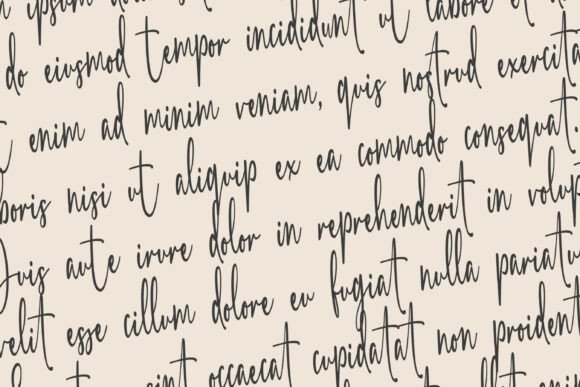 ipsum
do eiusmod tempor incididunt ut labore et
enim ad minim veniam, quis nostrud exercita
boris nisi ut aliquip ex ea commodo consequat.
Duis aute irure dolor in reprehenderit in volup
velit esse cillum dolore eu fugiat nulla pariatu
sint occaecat cupidatat non proident